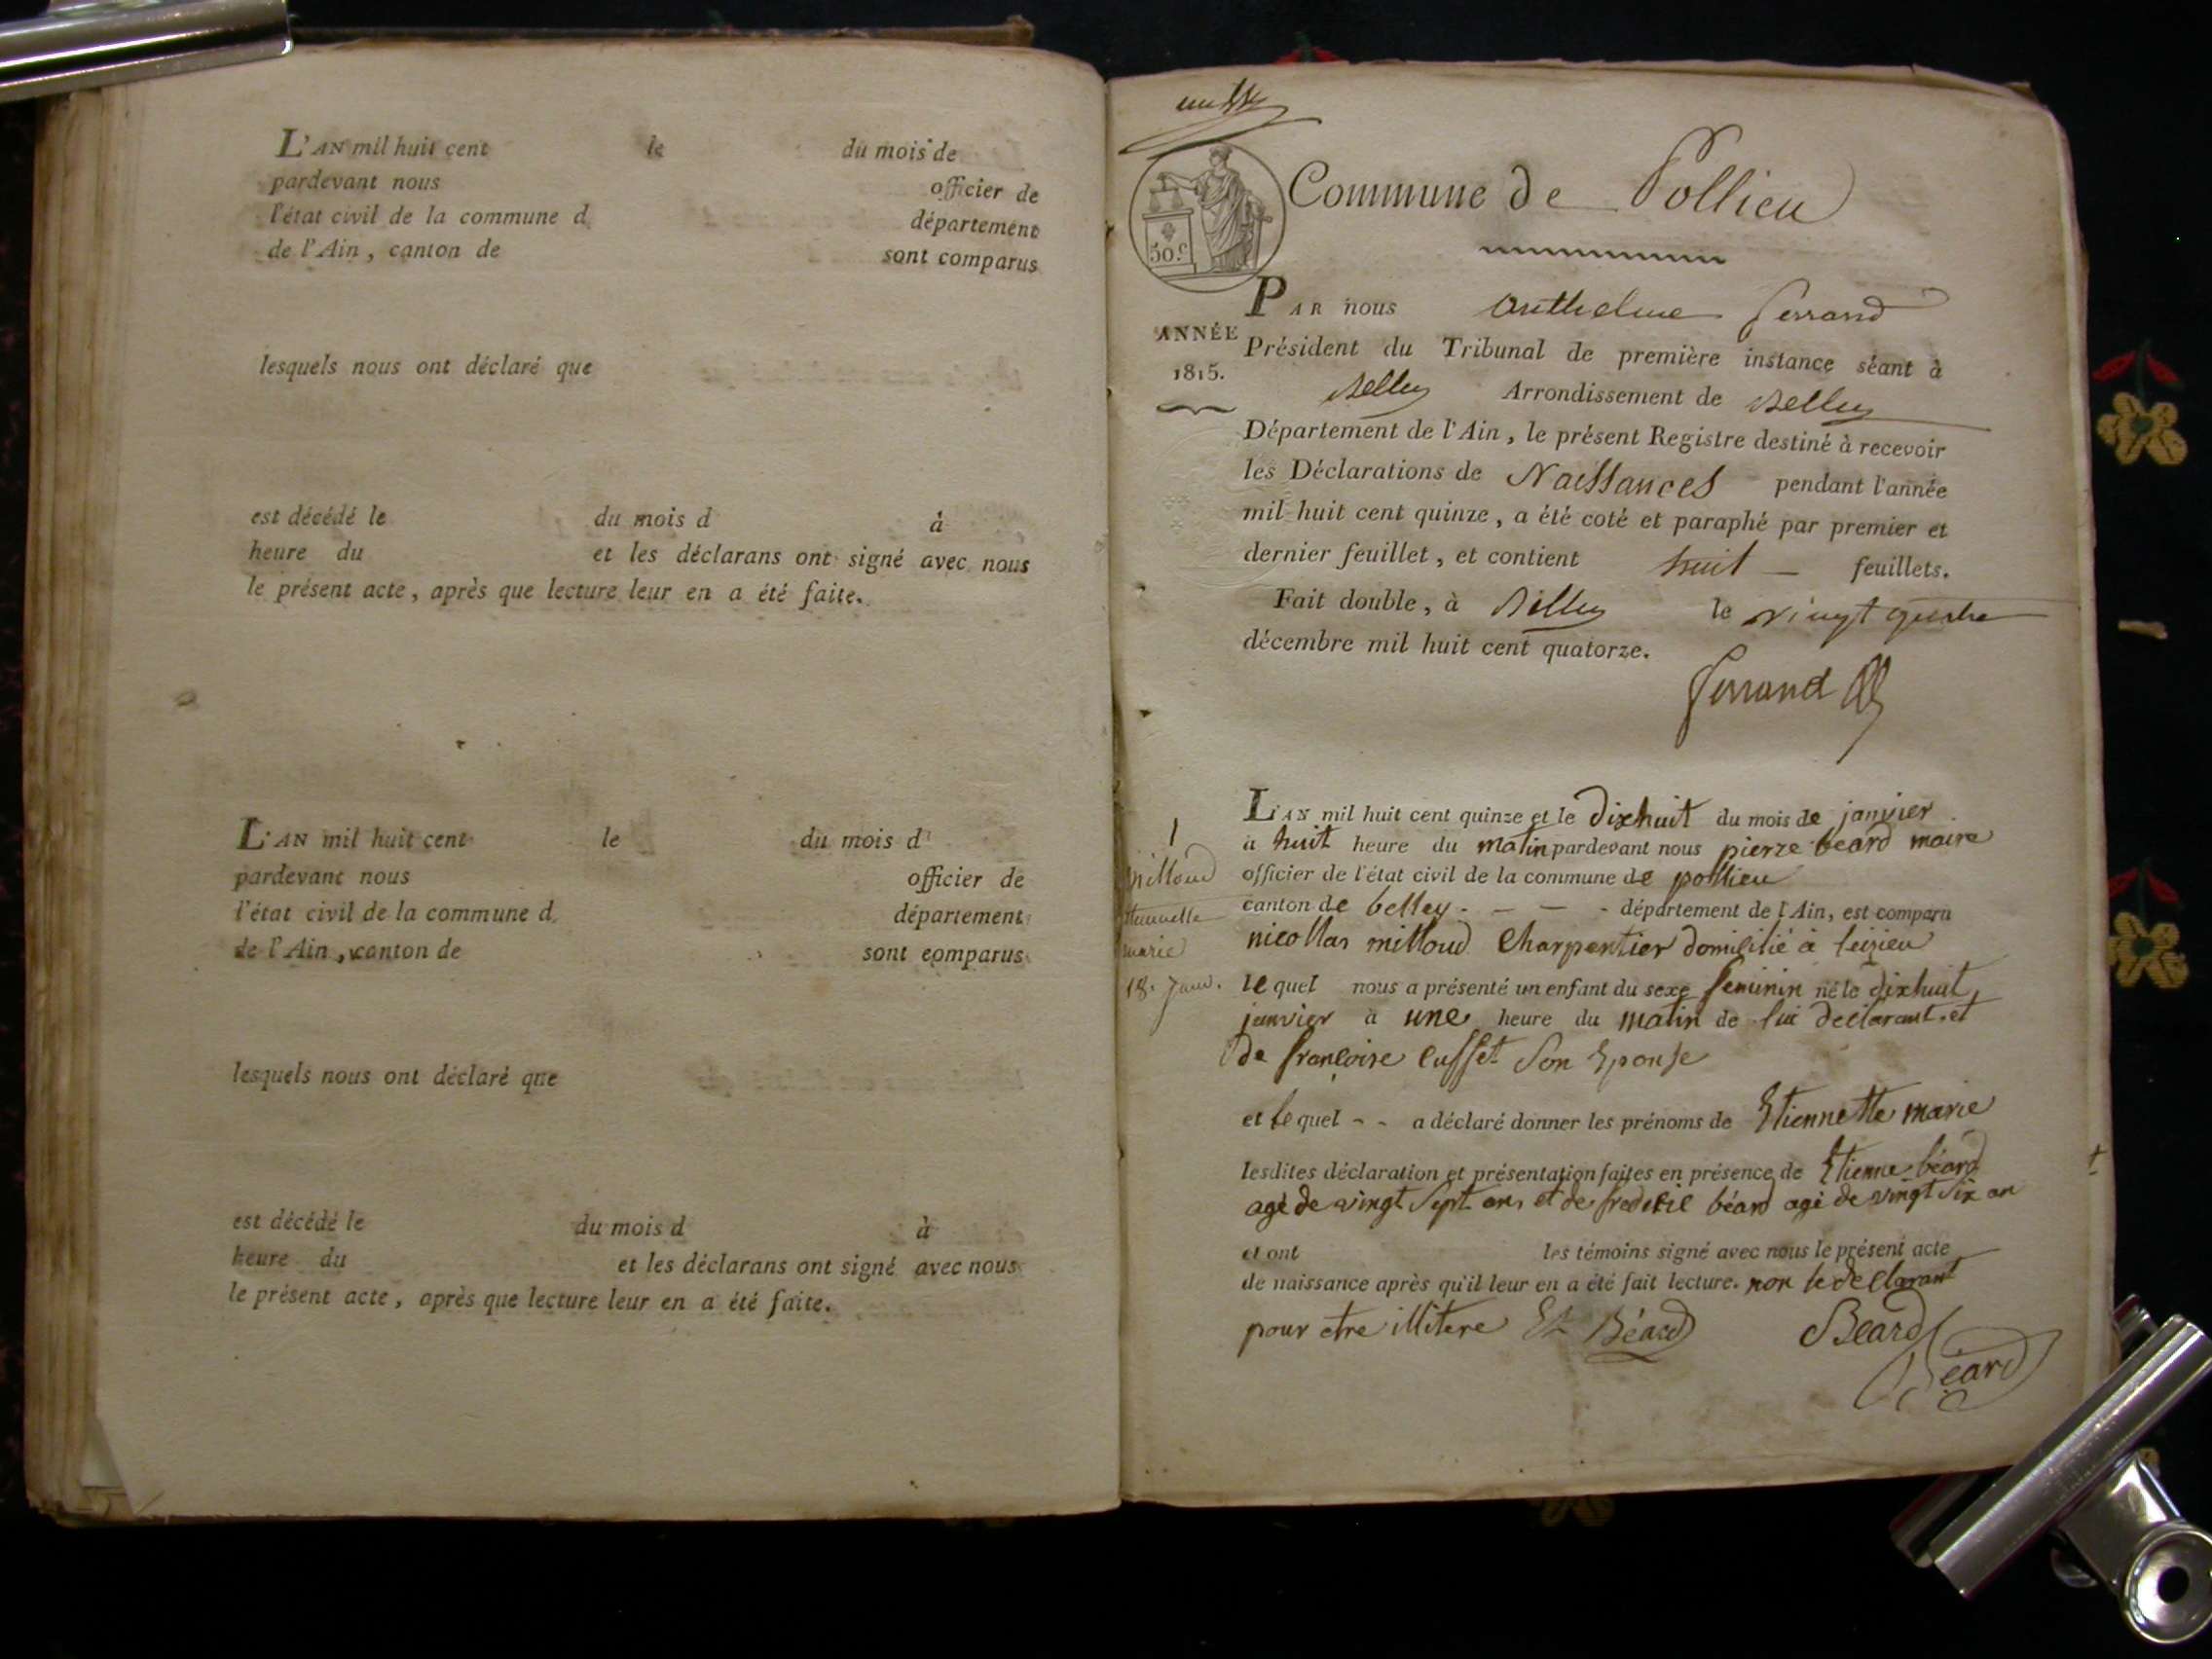 L'AN mil huit cent le du mois de
pardevant nous officier de
l'état civil de la commune d département
de l'Ain, canton de sont comparus
lesquels nous ont déclaré que
est décédé le du mois d à
heure du et les déclarans ont signé avec nous
le présent acte, après que lecture leur en a été faite.
L'AN mil huit cent le du mois d
pardevant nous officier de
l'état civil de la commune d département
de l'Ain, canton de sont comparus
lesquels nous ont déclaré que
est décédé le du mois d à
heure du et les déclarans ont signé avec nous
le présent acte, après que lecture leur en a été faite.
Commune de Pollieu
50.c
PAR nous Anthelme Ferrand
ANNÉE
1815.
Président du Tribunal de première instance séant à
Belley Arrondissement de Belley
Département de l'Ain, le présent Registre destiné à recevoir
les Déclarations de Naissances pendant l'année
mil huit cent quinze, a été coté et paraphé par premier et
dernier feuillet, et contient huit feuillets.
Fait double, à Belley le vingt quatre
décembre mil huit cent quatorze.
Ferrand
1
Milloud
marie
18. Janv.
L'AN mil huit cent quinze et le dixhuit du mois de janvier
à huit heure du matin pardevant nous pierre beard maire
officier de l'état civil de la commune de pollieu
canton de belley - - - - département de l'Ain, est comparu
nicollas milloud Charpentier domicilié à leizieu
lequel nous a présenté un enfant du sexe feminin né le dixhuit
janvier à une heure du matin de lui declarant et
de francoise cusset son Epouse
et lequel - - a déclaré donner les prénoms de Etiennette marie
lesdites déclaration et présentation faites en présence de Etienne béard
agé de vingt sept ans et de frederic béard agé de vingt six an
et ont les témoins signé avec nous le présent acte
de naissance après qu'il leur en a été fait lecture. non le declarant
pour etre illitere Et Béard Beard
Béard